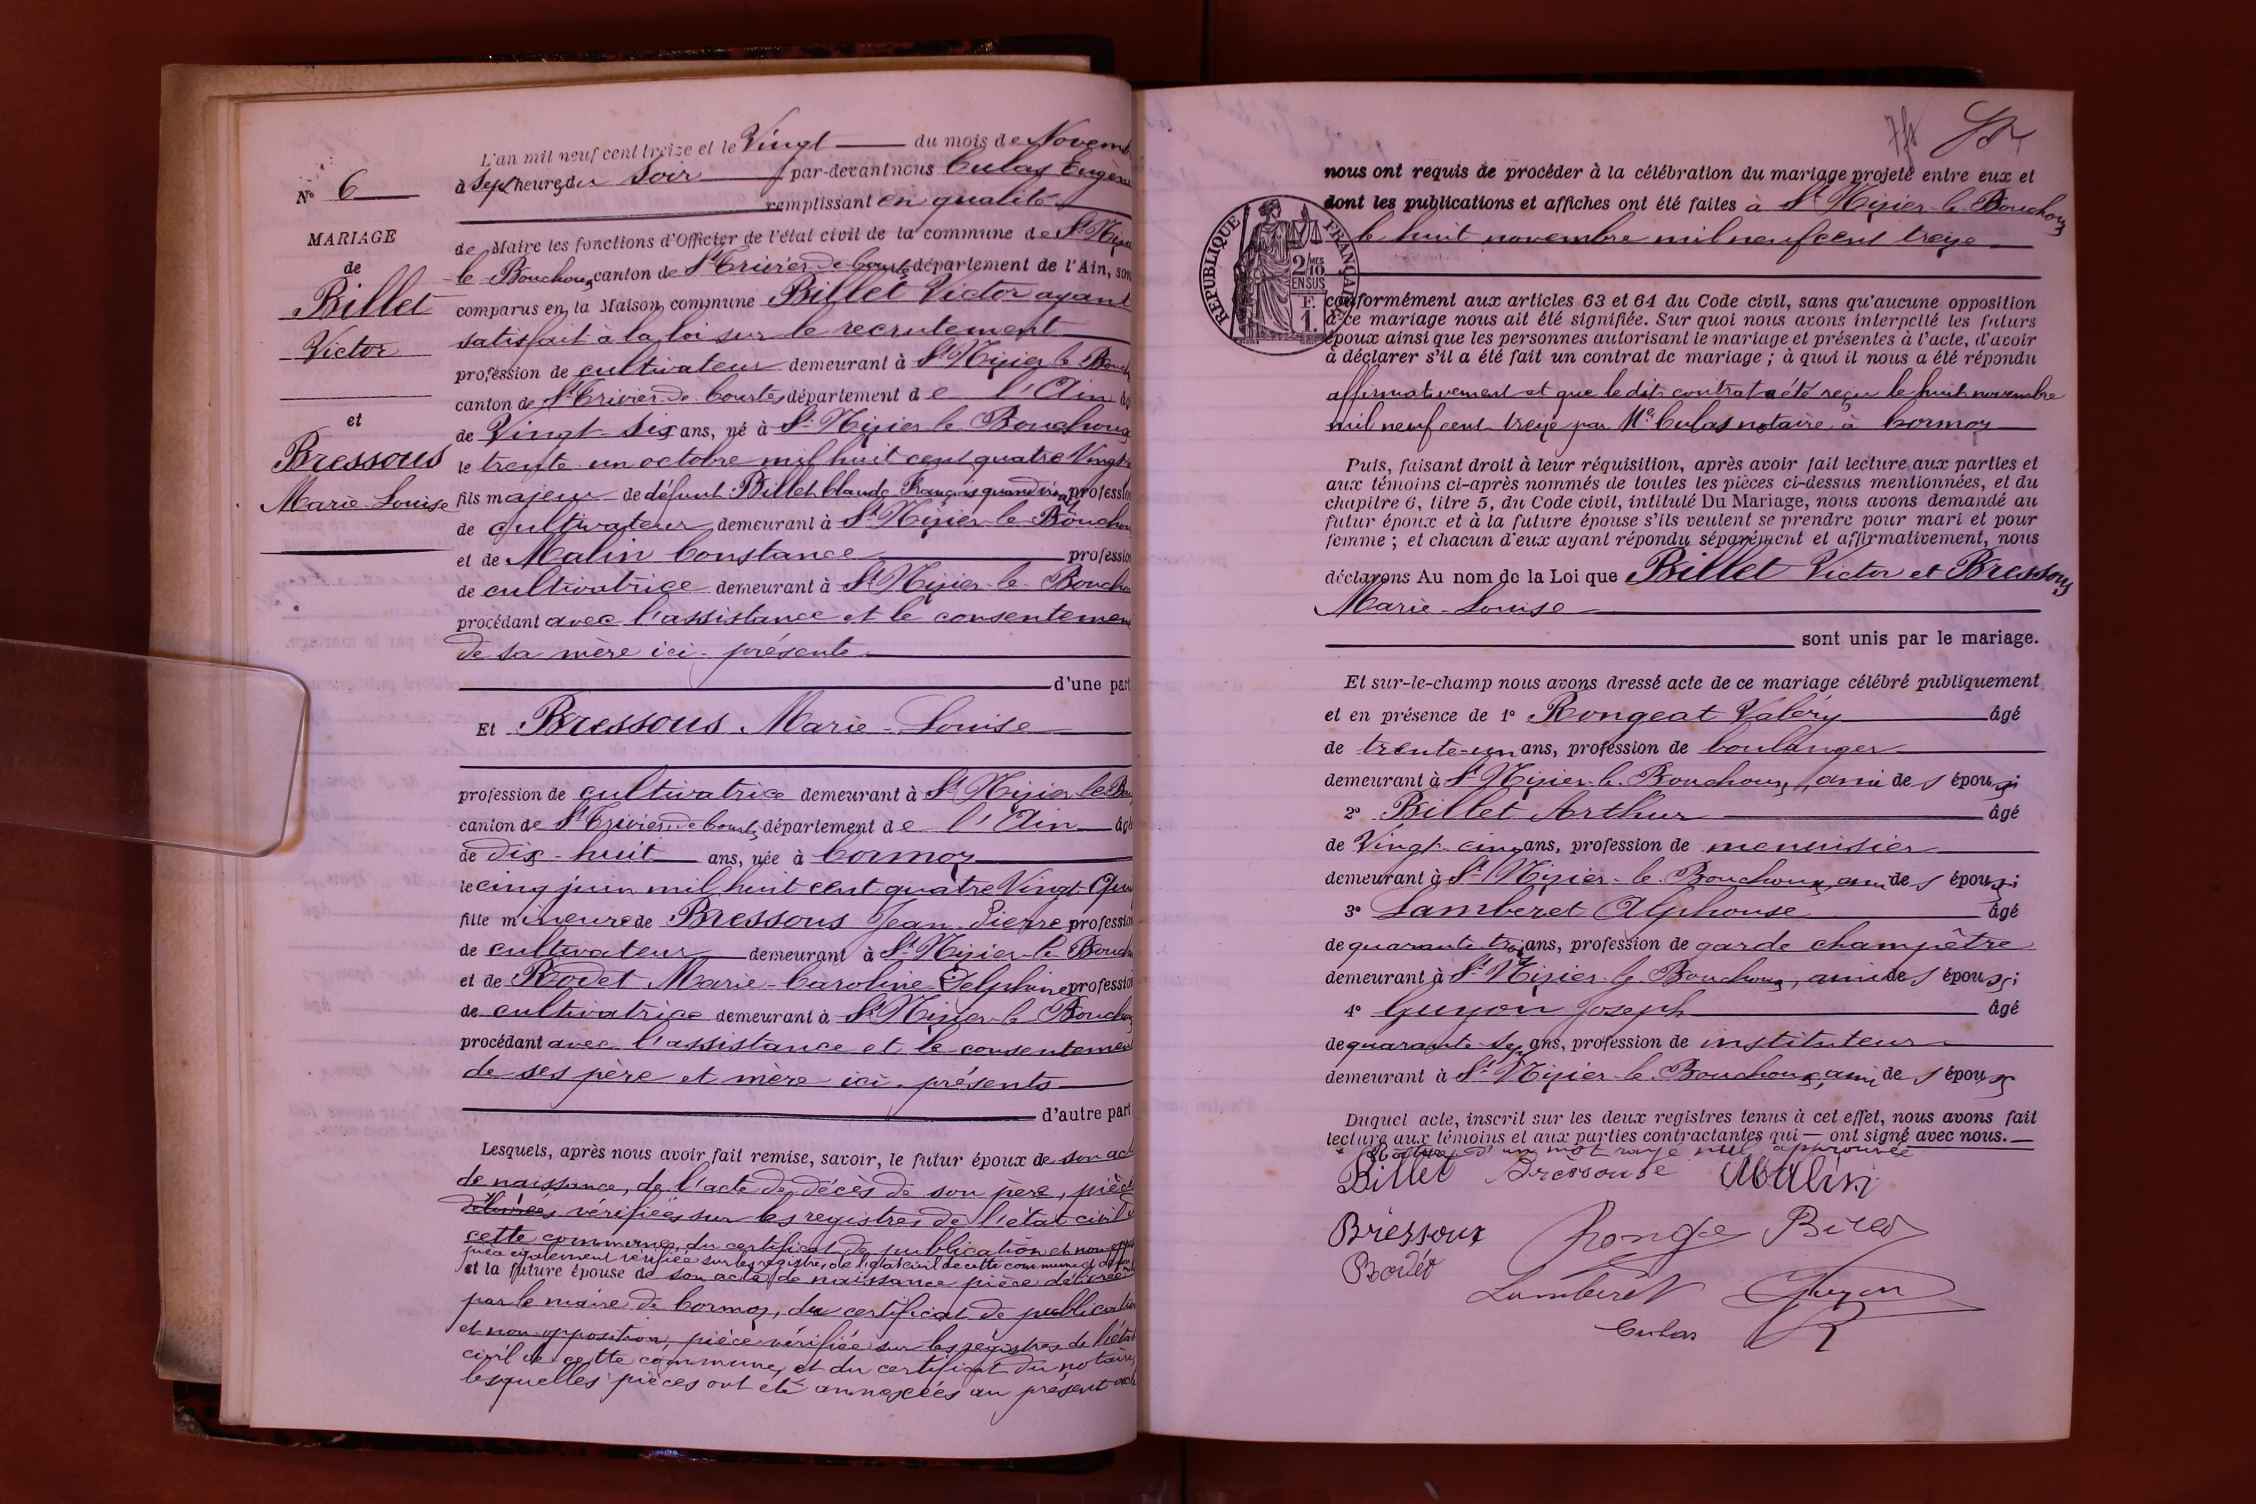 N° 6
MARIAGE
de
Billet
Victor
et
Bressoux
Marie-Louise
L'an mil neuf cent treize et le Vingt du mois de Novemb
à sept heures du soir par-devant nous Culas Eugène
remplissant en qualité
de Maire les fonctions d'Officier de l'état civil de la commune de St Nizier
le Bouchoux canton de St Trivier-de-Courtes département de l'Ain, son
comparus en la Maison commune Billet Victor ayant
satisfait à la loi sur le recrutement
profession de cultivateur demeurant à St Nizier le Bouch
canton de St Trivier-de-Courtes département de l'Ain âg
de Vingt-six ans, né à St Nizier le Bouchoux
le trente-un octobre mil huit cent quatre Vingt-
fils majeur de défunt Billet Claude François quand vivai profession
de cultivateur demeurant à St Nizier-le-Bouchou
et de Malin Constance profession
de cultivatrice demeurant à St Nizier-le-Boucho
procédant avec l'assistance et le consentemen
de sa mère ici-présente
d'une part
Et Bressoux Marie-Louise
profession de cultivatrice demeurant à St Nizier-le-Bou
canton de St Trivier-de-Courtes département de l'Ain âgé
de dix-huit ans, née à Cormoz
le cinq juin mil huit cent quatre Vingt-Qui
fille mineure de Bressoux Jean-Pierre profession
de cultivateur demeurant à St Nizier-le-Bouch
et de Rodet Marie-Caroline Delphine profession
de cultivatrice demeurant à St Nizier-le-Bouchoux
procédant avec l'assistance et le consentemen
de ses père et mère ici-présents
d'autre part
Lesquels, après nous avoir fait remise, savoir, le futur époux de son act
de naissance, de l'acte de décès de son père, pièce
délivrées vérifiées sur les registres de l'état civil d
cette commune, du certificat de publication et non oppos
pièce également vérifiée sur les registres de l'état civil de cette commune
et la future épouse de son acte de naissance pièce délivrée
par le maire de Cormoz, du certificat de publication
et non opposition, pièce vérifiée sur les registres de l'état
civil de cette commune, et du certificat du notaire,
lesquelles pièces ont été annexées au présent acte
nous ont requis de procéder à la célébration du mariage projeté entre eux et
dont les publications et affiches ont été faites à St Nizier-le-Bouchoux
le huit novembre mil neuf cent treize
RÉPUBLIQUE FRANÇAISE
2/10 MES
EN SUS
F.
1.
conformément aux articles 63 et 64 du Code civil, sans qu'aucune opposition
à ce mariage nous ait été signifiée. Sur quoi nous avons interpellé les futurs
époux ainsi que les personnes autorisant le mariage et présentes à l'acte, d'avoir
à déclarer s'il a été fait un contrat de mariage ; à quoi il nous a été répondu
affirmativement et que le dit contrat a été reçu le huit novembre
mil neuf cent treize par Me Culas notaire à Cormoz
Puis, faisant droit à leur réquisition, après avoir fait lecture aux parties et
aux témoins ci-après nommés de toutes les pièces ci-dessus mentionnées, et du
chapitre 6, titre 5, du Code civil, intitulé Du Mariage, nous avons demandé au
futur époux et à la future épouse s'ils veulent se prendre pour mari et pour
femme ; et chacun d'eux ayant répondu séparément et affirmativement, nous
déclarons Au nom de la Loi que Billet Victor et Bressoux
Marie-Louise
sont unis par le mariage.
Et sur-le-champ nous avons dressé acte de ce mariage célébré publiquement
et en présence de 1° Rongeat Valéry âgé
de trente-un ans, profession de boulanger
demeurant à St Nizier-le-Bouchoux, ami des époux;
2° Billet Arthur âgé
de Vingt-cinq ans, profession de menuisier
demeurant à St Nizier-le-Bouchoux, ami des époux;
3° Lamberet Alphonse âgé
de quarante-trois ans, profession de garde champêtre
demeurant à St Nizier-le-Bouchoux, ami des époux;
4° Guyon Joseph âgé
de quarante-sept ans, profession de instituteur
demeurant à St Nizier-le-Bouchoux, ami des époux
Duquel acte, inscrit sur les deux registres tenus à cet effet, nous avons fait
lecture aux témoins et aux parties contractantes qui — ont signé avec nous.
d'un mot rayé nul approuvée
Billet Bressoux Malin
Bressoux Ronge Billet
Rodet
Lamberet Guyon
Culas